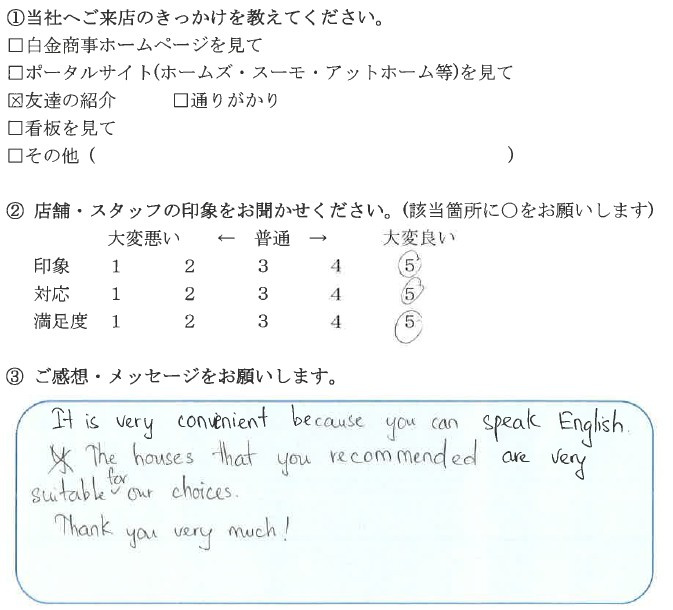 ①当社へご来店のきっかけを教えてください。
□白金商事ホームページを見て
□ポータルサイト(ホームズ・スーモ・アットホーム等)を見て
☒友達の紹介　　　□通りがかり
□看板を見て
□その他（　　　　　　　　　　　　　　　　　　　　　　）
② 店舗・スタッフの印象をお聞かせください。(該当箇所に○をお願いします)
大変悪い　←　普通　→　大変良い
印象　1　2　3　4　5
対応　1　2　3　4　5
満足度　1　2　3　4　5
③ ご感想・メッセージをお願いします。
It is very convenient because you can speak English.
The houses that you recommended are very
suitable for our choices.
Thank you very much!